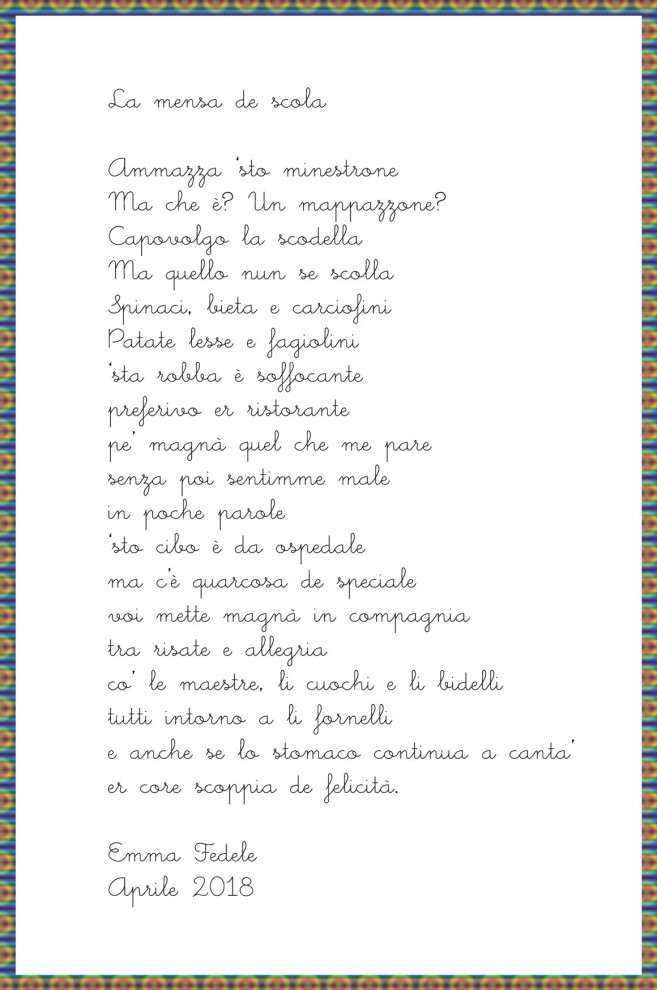 La mensa de scola
Ammazza 'sto minestrone
Ma che è? Un mappazzone?
Capovolgo la scodella
Ma quello nun se scolla
Spinaci, bieta e carciofini
Patate lesse e fagiolini
'sta robba è soffocante
preferivo er ristorante
pe' magnà quel che me pare
senza poi sentimme male
in poche parole
'sto cibo è da ospedale
ma c'è quarcosa de speciale
voi mette magnà in compagnia
tra risate e allegria
co' le maestre, li cuochi e li bidelli
tutti intorno a li fornelli
e anche se lo stomaco continua a canta'
er core scoppia de felicità.
Emma Fedele
Aprile 2018